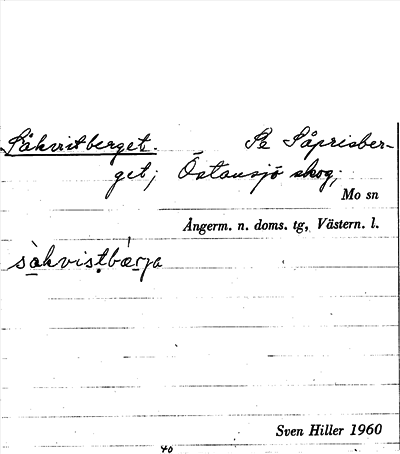 Såkvistberget. Se Såprisber-
get; Östansjö skog;
Mo sn
Ångerm. n. doms. tg, Västern. l.
såkvistbærja
Sven Hiller 1960
40